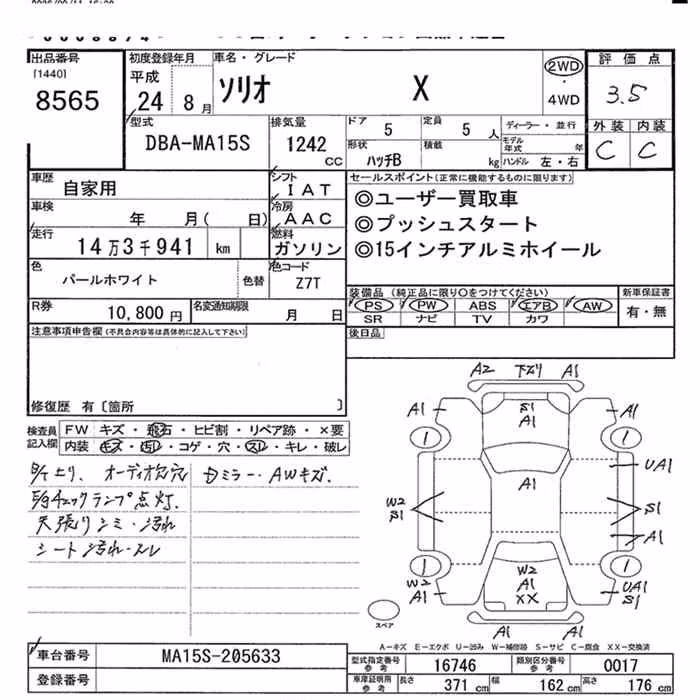 出品番号
[1440]
8565
初度登録年月
平成
24 8月
車名・グレード
ソリオ X
2WD
・
4WD
評価点
3.5
外装 内装
C C
型式
DBA-MA15S
排気量
1242
CC
ドア 5
定員 5 人
形状
ハッチB
積載 kg
ディーラー・並行
モデル年式 年
ハンドル 左・右
車歴
自家用
シフト
IAT
車検
年 月( 日)
冷房
AAC
走行
14万3千941 km
燃料
ガソリン
色
パールホワイト
色替
色コード
Z7T
R券
10,800円
名変通知期限
月 日
セールスポイント(正常に機能するものに限ります)
◎ユーザー買取車
◎プッシュスタート
◎15インチアルミホイール
装備品(純正品に限り○をつけてください)
新車保証書
PS PW ABS エアB AW
有・無
SR ナビ TV カワ
後日品
注意事項申告欄(不具合内容等は具体的に記入して下さい)
修復歴 有〔箇所 〕
検査員
記入欄
FW キズ・飛石・ヒビ割・リペア跡・×要
内装 キズ・汚れ・コゲ・穴・スレ・キレ・破レ
オーディオ欠穴
ミラー・AWキズ.
チェックランプ点灯.
天張りシミ・汚れ
シート汚れ・スレ
A2 下スリ A1
A1
S1
A1
A1
1
1
A1
UA1
W2
S1
S1
A1
1
1
W2
A1
W2
A1
XX
UA1
S1
A1 A1
スペア
A-キズ E-エクボ U-凹み W-補修跡 S-サビ C-腐食 XX-交換済
車台番号
MA15S-205633
登録番号
型式指定番号
参考
16746
類別区分番号
参考
0017
車庫証明用
参考
長さ 371 cm
幅 162 cm
高さ 176 cm